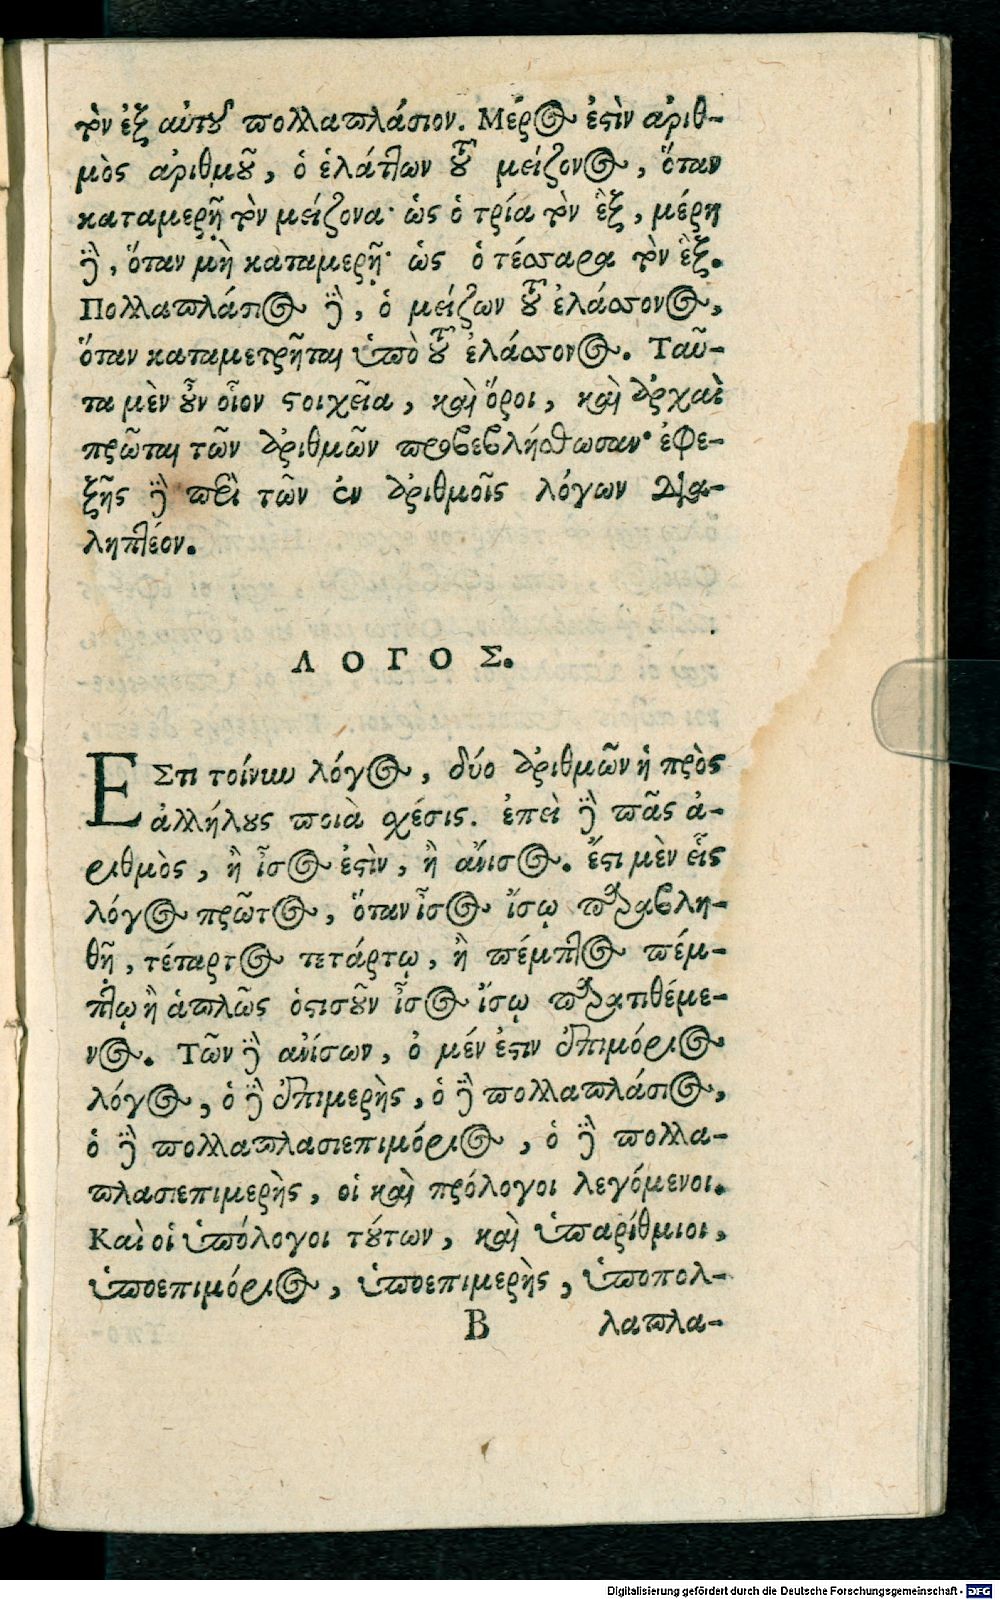 τὸν ἐξ αὐτοῦ πολλαπλάσιον. Μέρος ἐστὶν ἀριθ-
μὸς ἀριθμοῦ, ὁ ἐλάττων τοῦ μείζονος, ὅταν
καταμερῇ τὸν μείζονα· ὡς ὁ τρία τὸν ἓξ, μέρη
δὲ, ὅταν μὴ καταμερῇ· ὡς ὁ τέσσαρα τὸν ἓξ.
Πολλαπλάσιος δὲ, ὁ μείζων τοῦ ἐλάσσονος,
ὅταν καταμετρῆται ὑπὸ τοῦ ἐλάσσονος. Ταῦ-
τα μὲν οὖν οἷον στοιχεῖα, καὶ ὅροι, καὶ ἀρχαὶ
πρῶται τῶν ἀριθμῶν προβεβλήσθωσαν· ἐφε-
ξῆς δὲ περὶ τῶν ἐν ἀριθμοῖς λόγων διά-
ληπτέον.
ΛΟΓΟΣ.
ΕΣτι τοίνυν λόγος, δύο ἀριθμῶν ἡ πρὸς
ἀλλήλους ποιὰ σχέσις. ἐπεὶ δὲ πᾶς ἀ-
ριθμὸς, ἢ ἶσός ἐστὶν, ἢ ἄνισος. ἔστι μὲν εἷς
λόγος πρῶτος, ὅταν ἶσος ἴσῳ παραβλη-
θῇ, τέταρτος τετάρτῳ, ἢ πέμπτος πέμ-
πτῳ ἢ ἁπλῶς ὁστισοῦν ἶσος ἴσῳ παρατιθέμε-
νος. Τῶν δὲ ἀνίσων, ὁ μέν ἐστιν ἐπιμόριος
λόγος, ὁ δὲ ἐπιμερὴς, ὁ δὲ πολλαπλάσιος,
ὁ δὲ πολλαπλασιεπιμόριος, ὁ δὲ πολλα-
πλασιεπιμερὴς, οἱ καὶ πρόλογοι λεγόμενοι.
Καὶ οἱ ὑπόλογοι τούτων, καὶ ὑπαρίθμιοι,
ὑποεπιμόριος, ὑποεπιμερὴς, ὑποπολ-
Β λαπλα-
Digitalisierung gefördert durch die Deutsche Forschungsgemeinschaft - DFG